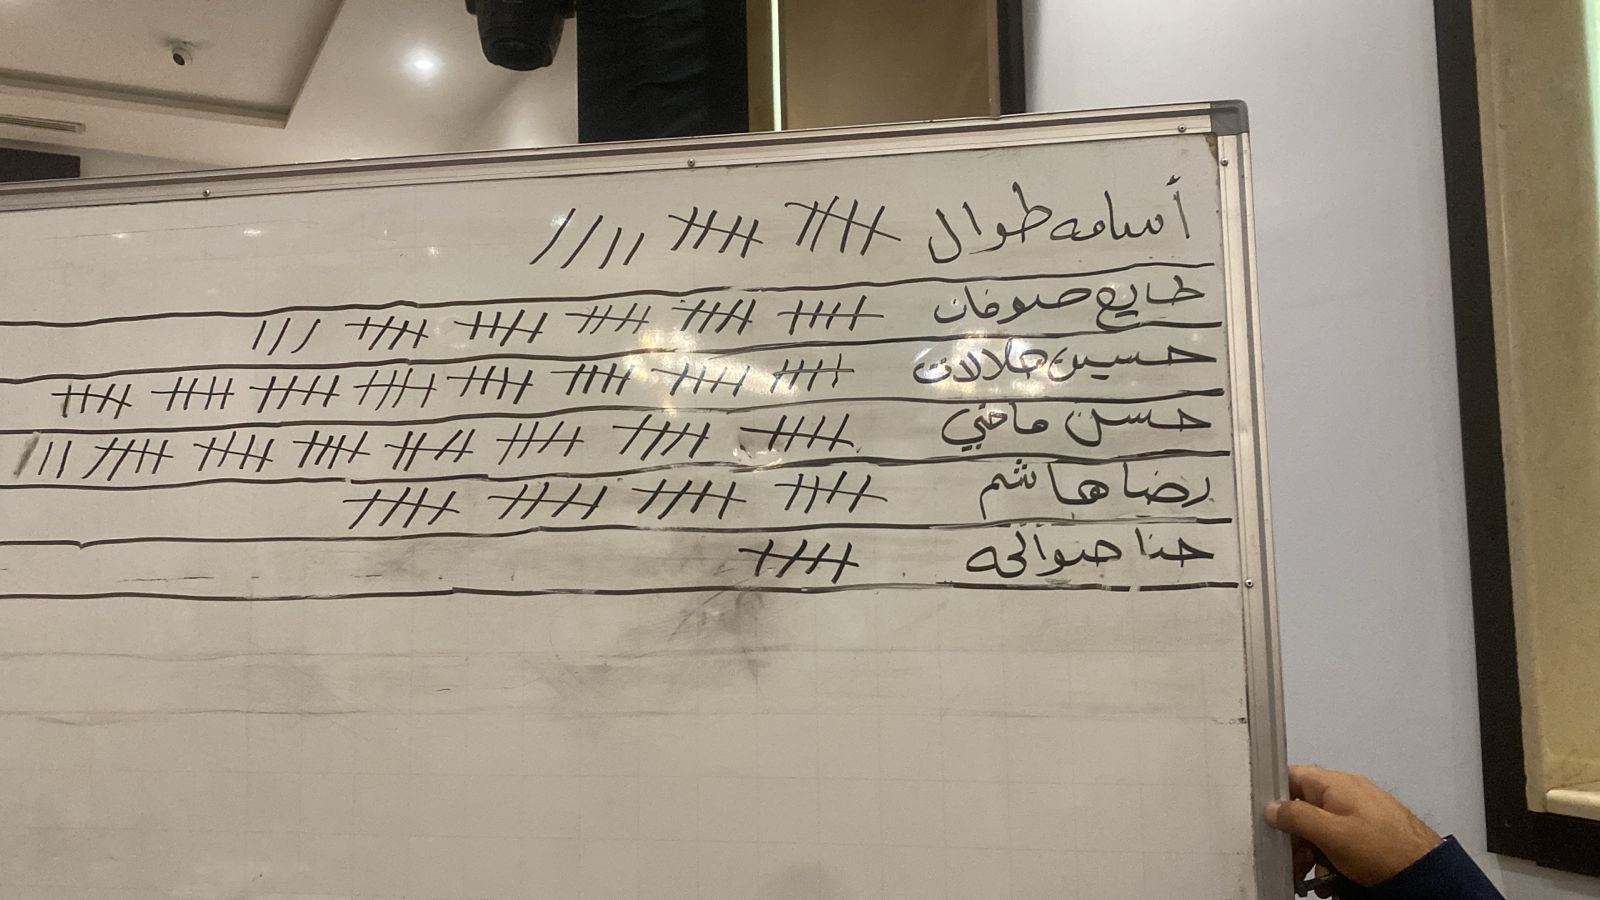 أسامه طوال
طايع صوفان
حسين حلالات
حسن ماضي
رضا هاشم
حنا صوالحه